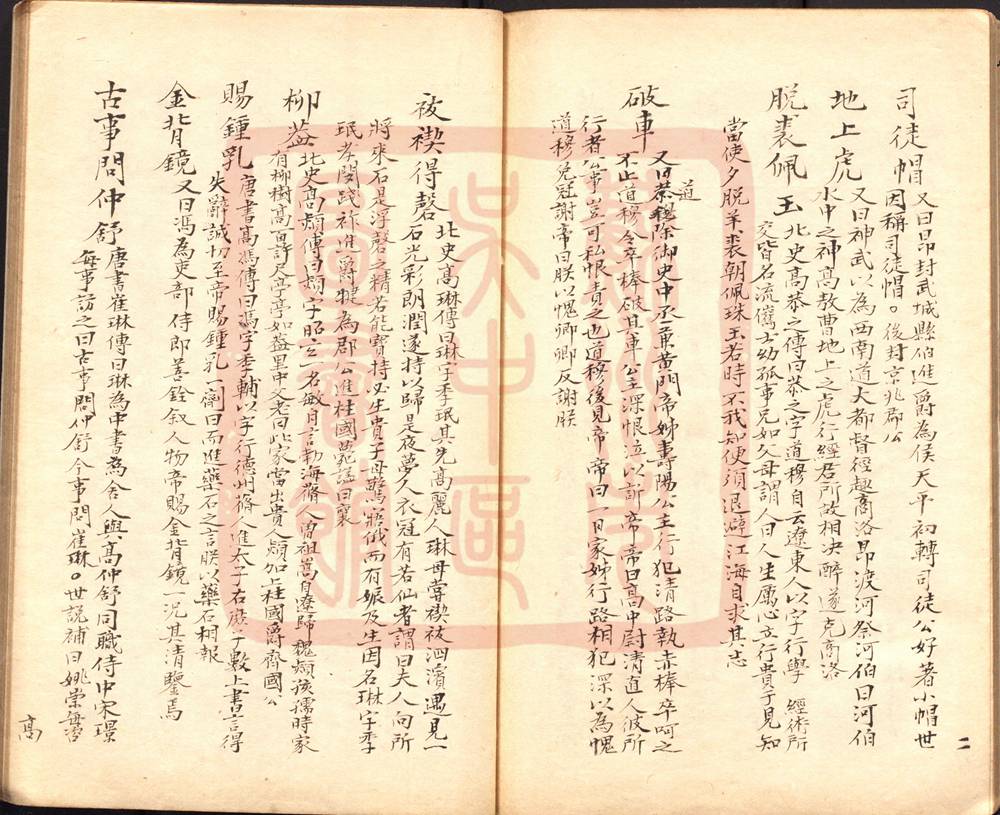 司徒帽 又曰昂封武城縣伯進爵為侯天平初轉司徒公好著小帽世
因稱司徒帽。後封京兆郡公
地上虎 又曰神武以為西南道大都督徑趣商洛昂渡河祭河伯曰河伯
水中之神高敖曹地上之虎行經君所故相决醉遂克商洛
脱裘佩玉 北史高恭之傳曰恭之字道穆自云遼東人以字行學 經術所
交皆名流儁士幼孤事兄如父母謂人曰人生厲心立行貴于見知
當使夕脱羊裘朝佩珠玉若時不我知便須退避江海自求其志
破車 又曰恭穆除御史中丞兼黄門帝姊壽陽公主行犯清路執赤棒卒呵之
道
不止道穆令卒棒破其車公主深恨泣以訴帝帝曰高中尉清直人彼所
行者公事豈可私恨責之也道穆後見帝帝曰一日家姊行路相犯深以為愧
道穆免冠謝帝曰朕以愧卿卿反謝朕
祓禊得磬 北史高琳傳曰琳字季珉其先高麗人琳母嘗禊祓泗濱遇見一
石光彩朗潤遂持以歸是夜夢人衣冠有若仙者謂曰夫人向所
將來石是浮磬之精若能寶持必生貴子母驚寤俄而有娠及生因名琳字季
珉孝閔踐祚進爵犍為郡公進柱國薨諡曰襄
柳蓋 北史高熲傳曰熲字昭玄一名敏自言勃海蓨人曾祖暠自遼歸魏熲孩孺時家
有柳樹高百許尺亭亭如蓋里中父老曰此家當出貴人熲加上柱國爵齊國公
賜鍾乳 唐書高馮傳曰馮字季輔以字行德州蓨人進太子右庶子數上書言得
失辭誠切至帝賜鍾乳一劑曰而進藥石之言朕以藥石相報
金背鏡 又曰馮為吏部侍郎善銓叙人物帝賜金背鏡一况其清鑒焉
古事問仲舒 唐書崔琳傳曰琳為中書為舍人與高仲舒同職侍中宋璟
每事訪之曰古事問仲舒今事問崔琳。世說補曰姚崇每
高
二